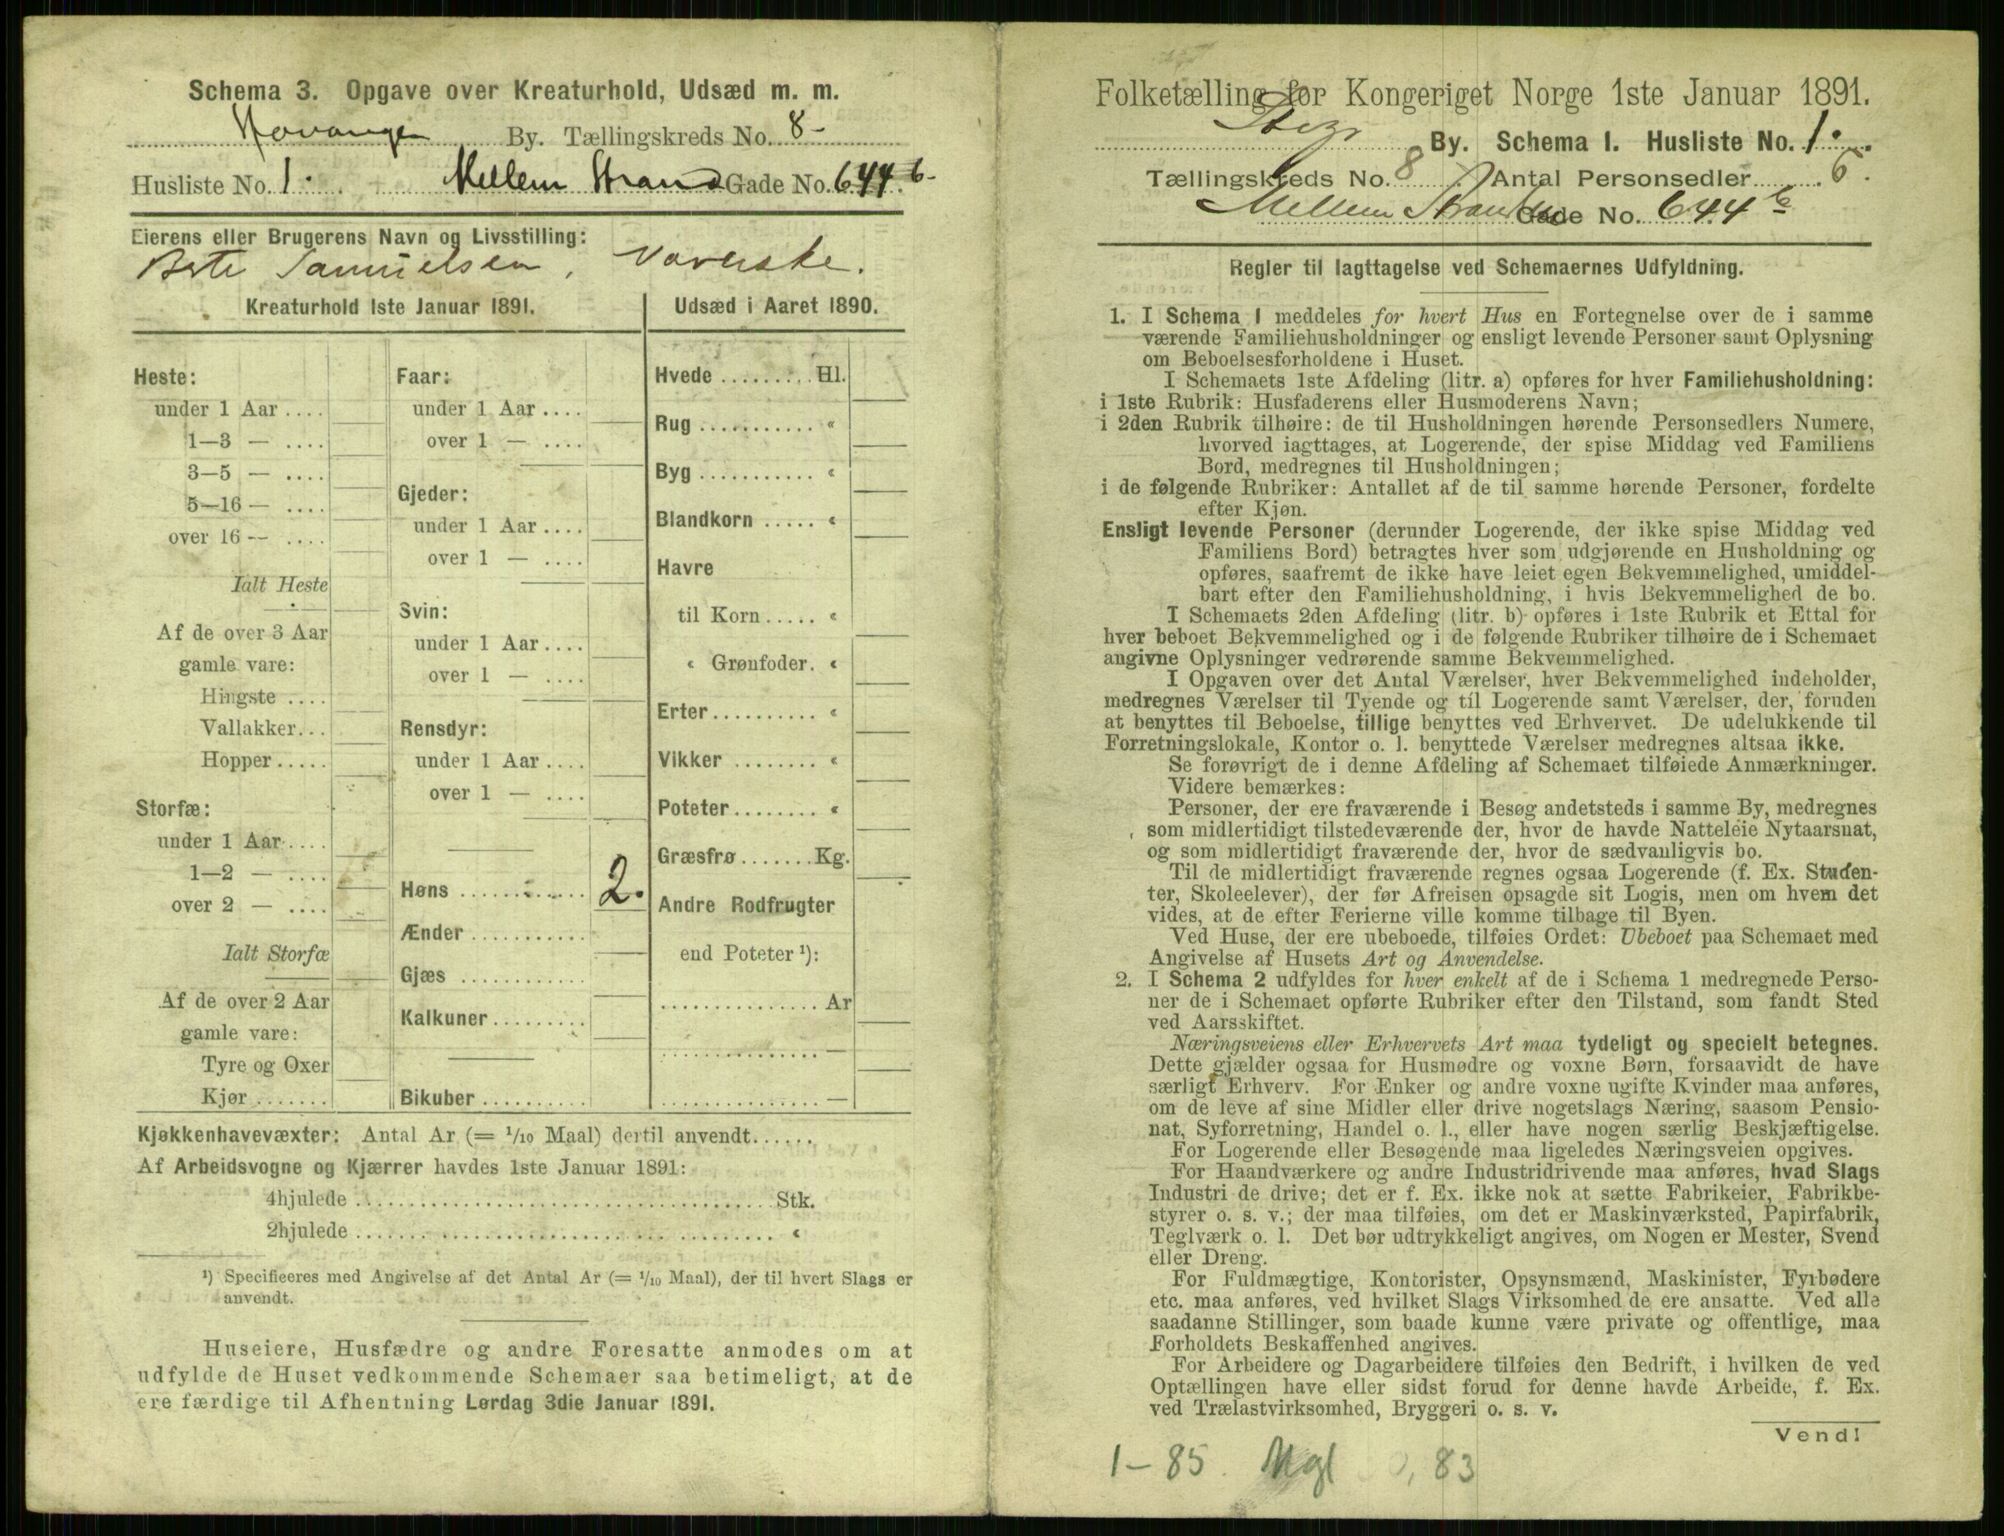 Schema 3. Opgave over Kreaturhold, Udsæd m. m.
Stavanger By. Tællingskreds No. 8-
Husliste No. 1. Mellem Strand Gade No. 644.b-
Eierens eller Brugerens Navn og Livsstilling:
Berte Samuelsen, Væverske.
Kreaturhold 1ste Januar 1891.
Heste:
under 1 Aar ....
1—3 — ....
3—5 — ....
5—16 — ....
over 16 — ....
Ialt Heste
Af de over 3 Aar
gamle vare:
Hingste ....
Vallakker...
Hopper.....
Storfæ:
under 1 Aar....
1—2 — ....
over 2 — ....
Ialt Storfæ
Af de over 2 Aar
gamle vare:
Tyre og Oxer
Kjør.......
Faar:
under 1 Aar....
over 1 — ....
Gjeder:
under 1 Aar....
over 1 — ....
Svin:
under 1 Aar....
over 1 — ....
Rensdyr:
under 1 Aar....
over 1 — ....
Høns .......... 2.
Ænder..........
Gjæs ..........
Kalkuner.........
Bikuber..........
Udsæd i Aaret 1890.
Hvede ......... Hl.
Rug ........... «
Byg ........... «
Blandkorn ..... «
Havre
til Korn..... «
« Grønfoder. «
Erter.......... «
Vikker ........ «
Poteter........ «
Græsfrø.......Kg.
Andre Rodfrugter
end Poteter ¹):
............... Ar
............... —
............... —
Kjøkkenhavevæxter: Antal Ar (= 1/10 Maal) dertil anvendt......
Af Arbeidsvogne og Kjærrer havdes 1ste Januar 1891:
4hjulede ........................................ Stk.
2hjulede ........................................ «
¹) Specifieeres med Angivelse af det Antal Ar (= 1/10 Maal), der til hvert Slags er
anvendt.
Huseiere, Husfædre og andre Foresatte anmodes om at
udfylde de Huset vedkommende Schemaer saa betimeligt, at de
ere færdige til Afhentning Lørdag 3die Januar 1891.
Folketælling for Kongeriget Norge 1ste Januar 1891.
By. Schema 1. Husliste No. 1.
Tællingskreds No. 8 Antal Personsedler 6.
Mellem Strand Gade No. 644 b
Regler til Iagttagelse ved Schemaernes Udfyldning.
1. I Schema 1 meddeles for hvert Hus en Fortegnelse over de i samme
værende Familiehusholdninger og ensligt levende Personer samt Oplysning
om Beboelsesforholdene i Huset.
I Schemaets 1ste Afdeling (litr. a) opføres for hver Familiehusholdning:
i 1ste Rubrik: Husfaderens eller Husmoderens Navn;
i 2den Rubrik tilhøire: de til Husholdningen hørende Personsedlers Numere,
hvorved iagttages, at Logerende, der spise Middag ved Familiens
Bord, medregnes til Husholdningen;
i de følgende Rubriker: Antallet af de til samme hørende Personer, fordelte
efter Kjøn.
Ensligt levende Personer (derunder Logerende, der ikke spise Middag ved
Familiens Bord) betragtes hver som udgjørende en Husholdning og
opføres, saafremt de ikke have leiet egen Bekvemmelighed, umiddel-
bart efter den Familiehusholdning, i hvis Bekvemmelighed de bo.
I Schemaets 2den Afdeling (litr. b) opføres i 1ste Rubrik et Ettal for
hver beboet Bekvemmelighed og i de følgende Rubriker tilhøire de i Schemaet
angivne Oplysninger vedrørende samme Bekvemmelighed.
I Opgaven over det Antal Værelser, hver Bekvemmelighed indeholder,
medregnes Værelser til Tyende og til Logerende samt Værelser, der, foruden
at benyttes til Beboelse, tillige benyttes ved Erhvervet. De udelukkende til
Forretningslokale, Kontor o. l. benyttede Værelser medregnes altsaa ikke.
Se forøvrigt de i denne Afdeling af Schemaet tilføiede Anmærkninger.
Videre bemærkes:
Personer, der ere fraværende i Besøg andetsteds i samme By, medregnes
som midlertidigt tilstedeværende der, hvor de havde Natteleie Nytaarsnat,
og som midlertidigt fraværende der, hvor de sædvanligvis bo.
Til de midlertidigt fraværende regnes ogsaa Logerende (f. Ex. Studen-
ter, Skoleelever), der før Afreisen opsagde sit Logis, men om hvem det
vides, at de efter Ferierne ville komme tilbage til Byen.
Ved Huse, der ere ubeboede, tilføies Ordet: Ubeboet paa Schemaet med
Angivelse af Husets Art og Anvendelse.
2. I Schema 2 udfyldes for hver enkelt af de i Schema 1 medregnede Perso-
ner de i Schemaet opførte Rubriker efter den Tilstand, som fandt Sted
ved Aarsskiftet.
Næringsveiens eller Erhvervets Art maa tydeligt og specielt betegnes.
Dette gjælder ogsaa for Husmødre og voxne Børn, forsaavidt de have
særligt Erhverv. For Enker og andre voxne ugifte Kvinder maa anføres,
om de leve af sine Midler eller drive nogetslags Næring, saasom Pensio-
nat, Syforretning, Handel o. l., eller have nogen særlig Beskjæftigelse.
For Logerende eller Besøgende maa ligeledes Næringsveien opgives.
For Haandværkere og andre Industridrivende maa anføres, hvad Slags
Industri de drive; det er f. Ex. ikke nok at sætte Fabrikeier, Fabrikbe-
styrer o. s. v.; der maa tilføies, om det er Maskinværksted, Papirfabrik,
Teglværk o. l. Det bør udtrykkeligt angives, om Nogen er Mester, Svend
eller Dreng.
For Fuldmægtige, Kontorister, Opsynsmænd, Maskinister, Fyrbødere
etc. maa anføres, ved hvilket Slags Virksomhed de ere ansatte. Ved alle
saadanne Stillinger, som baade kunne være private og offentlige, maa
Forholdets Beskaffenhed angives.
For Arbeidere og Dagarbeidere tilføies den Bedrift, i hvilken de ved
Optællingen have eller sidst forud for denne havde Arbeide, f. Ex.
ved Trælastvirksomhed, Bryggeri o. s. v.
Vend!
1 — 85. Mgl 83